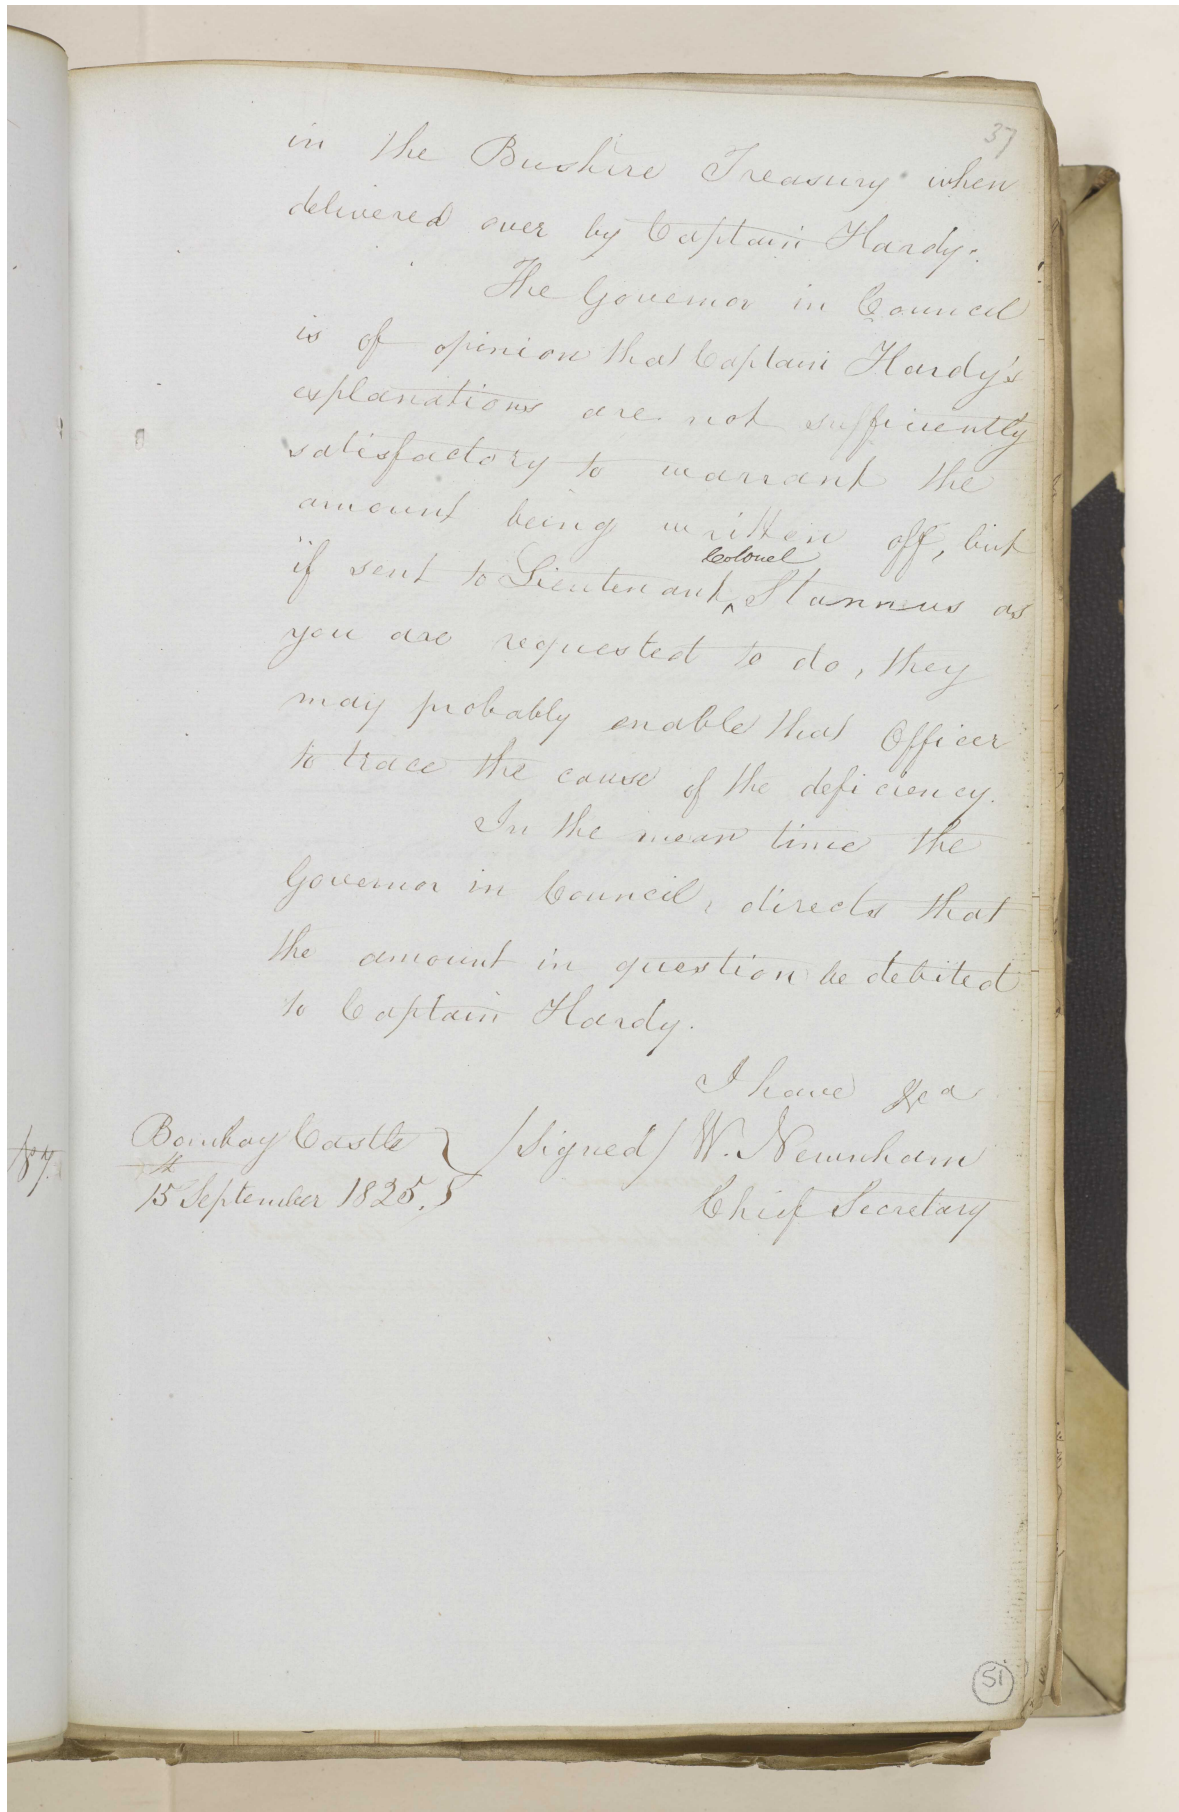 37
in the Bushire Treasury when
delivered over by Captain Hardy.
The Governor in Council
is of opinion that Captain Hardy's
explanations are not sufficiently
satisfactory to warrant the
amount being written off, but
Colonel
if sent to Lieutenant ^ Stannus as
you are requested to do, they
may probably enable that Officer
to trace the cause of the deficiency.
In the mean time the
Governor in Council, directs that
the amount in question be debited
to Captain Hardy.
I have &ca
Bombay Castle } /signed/ W. Newnham
15th September 1825. Chief Secretary
51